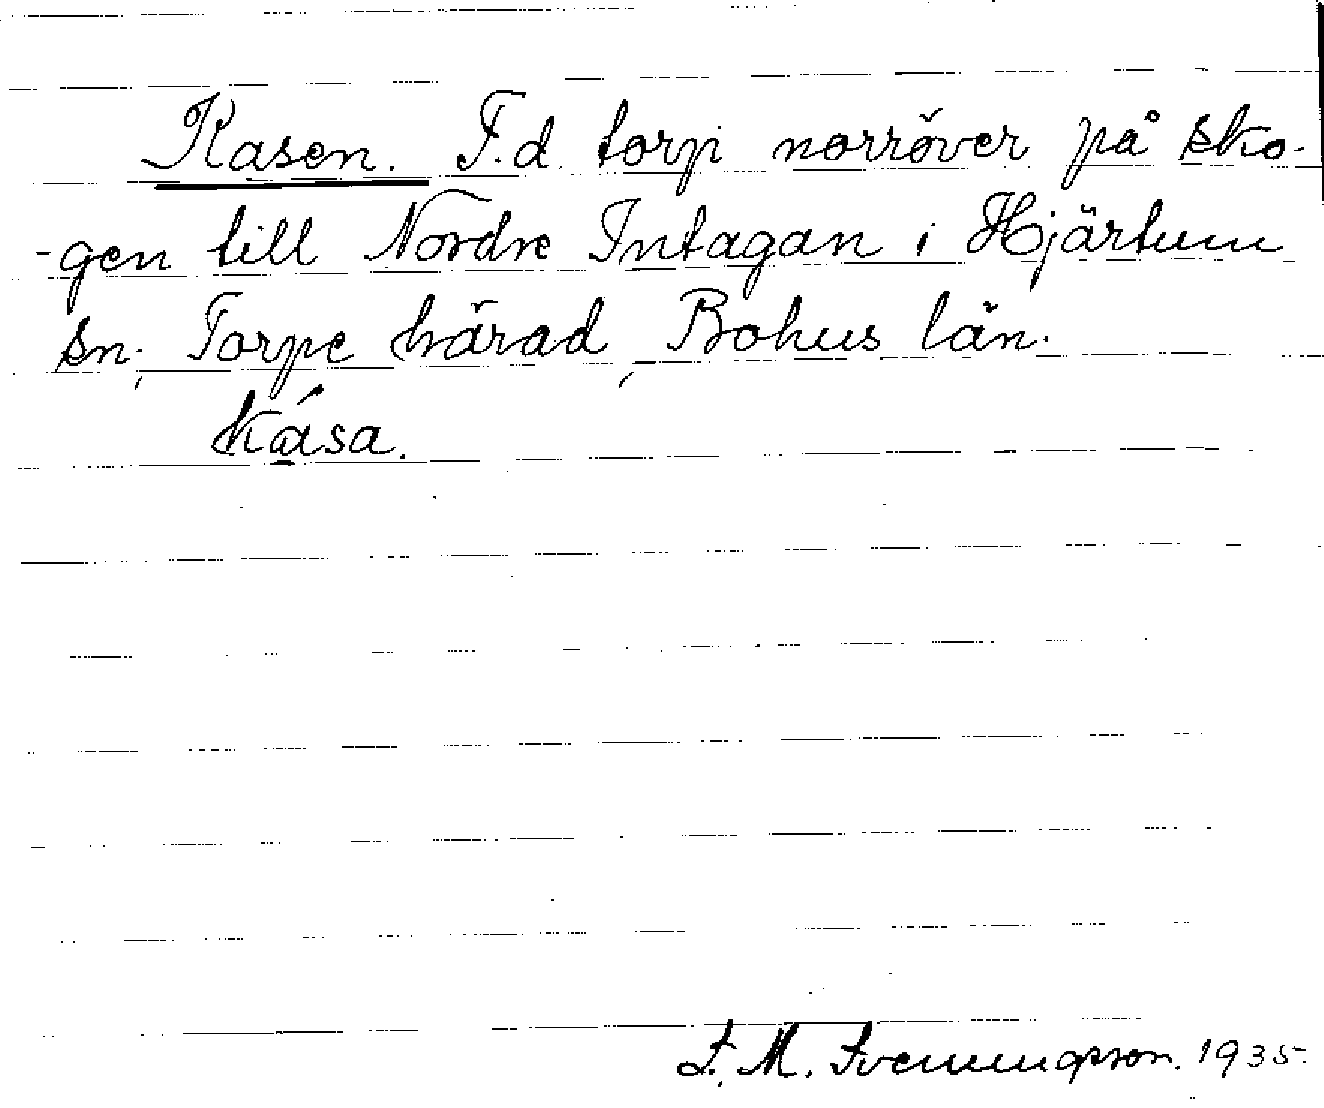 Kasen. F.d. torp norröver på sko-
-gen till Nordre Intagan i Hjärtum
sn., Torpe härad, Bohus län.
kása.
F. M. Svenningsson. 1935.